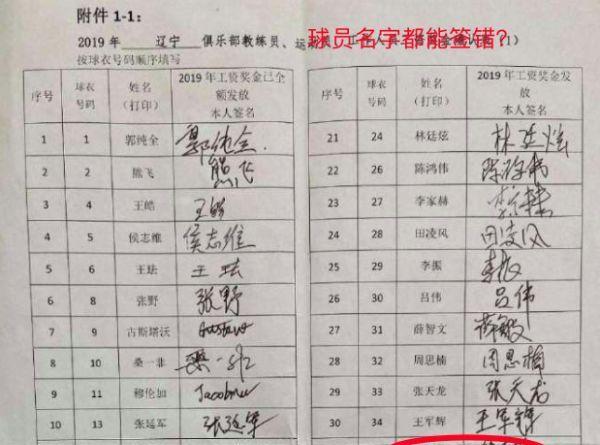 附件 1-1：
球员名字都能签错?
2019 年 辽宁 俱乐部教练员、运
按球衣号码顺序填写
序号 球衣号码 姓名（打印） 2019年工资奖金已全额发放 本人签名
1 1 郭纯全 郭纯全
2 2 熊飞 熊飞
3 4 王皓 王皓
4 5 侯志维 侯志维
5 6 王珐 王珐
6 8 张野 张野
7 9 古斯塔沃
8 10 桑一非 桑一非
9 11 穆伦加
10 13 张延军 张延军
序号 球衣号码 姓名（打印） 2019年工资奖金发放 本人签名
21 24 林廷炫 林廷炫
22 26 陈鸿伟
23 27 李家赫
24 28 田凌风 田凌风
25 29 李振 李振
26 30 吕伟 吕伟
27 31 薛智文
28 32 周思楠 周思楠
29 33 张天龙 张天龙
30 34 王军辉 王军辉